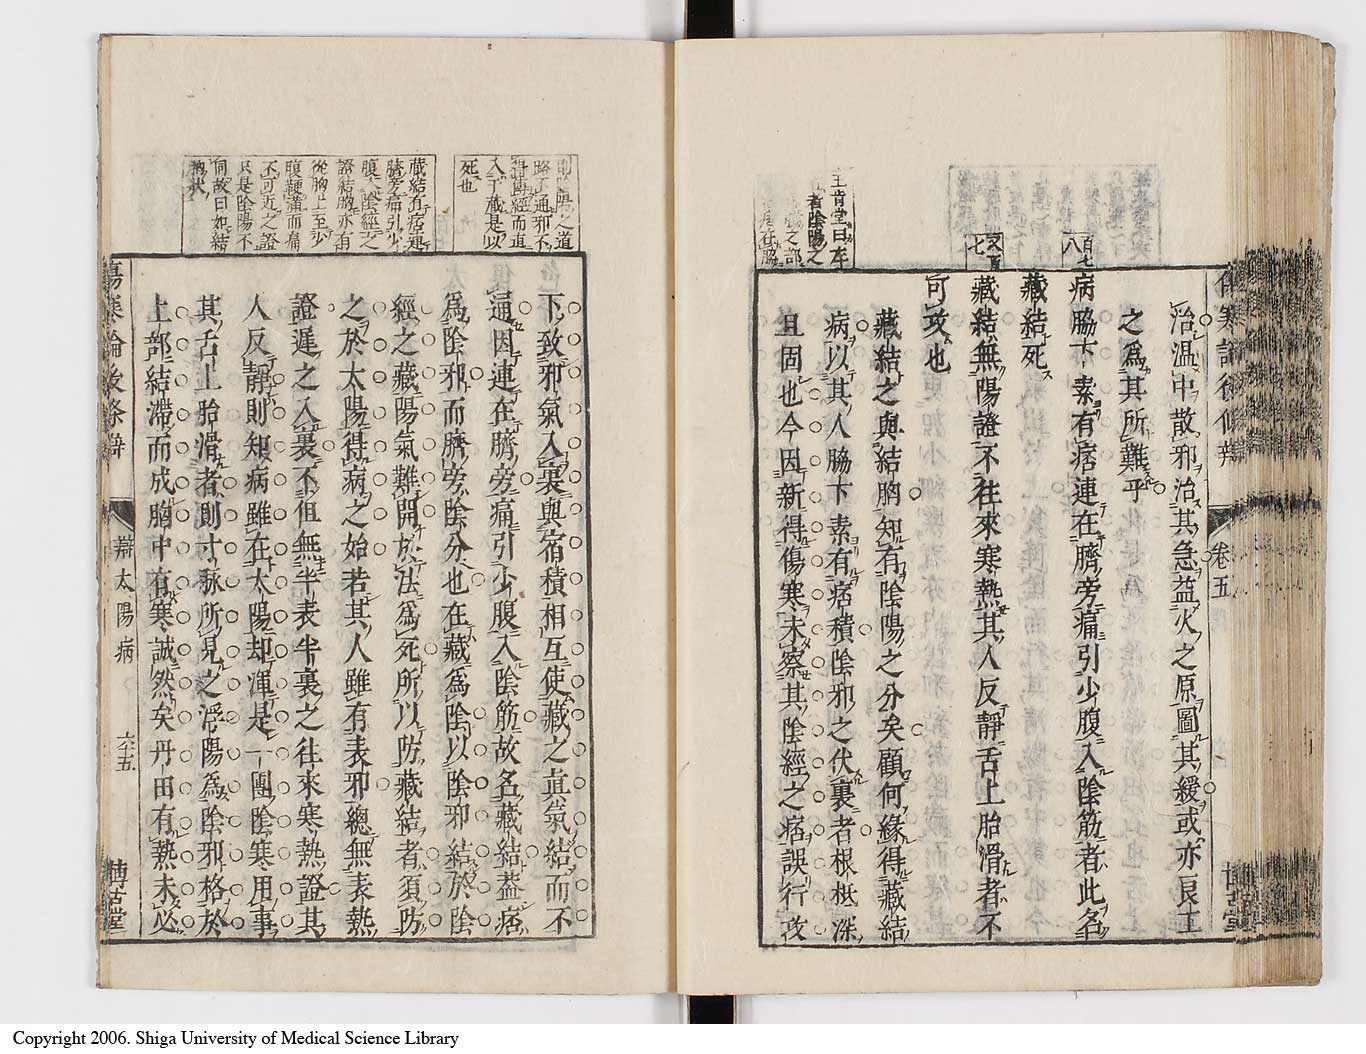 治溫中散邪治其急益火之原圖其緩或亦良工
之爲其所難乎
百七
八
病脇下素有痞連在臍旁痛引少腹入陰筋者此名
藏結死
又百
七
藏結無陽證不往來寒熱其人反靜舌上胎滑者不
可攻也
藏結之與結胸知有陰陽之分矣顧何緣得藏結
病以其人脇下素有痞積陰邪之伏裏者根柢深
且固也今因新得傷寒未察其陰經之痞誤行攻
王肯堂曰左
者陰陽之
卷五
下致邪氣入裏與宿積相互使藏之眞氣結而不
通因連在臍旁痛引少腹入陰筋故名藏結蓋痞
爲陰邪而臍旁陰分也在藏爲陰以陰邪結於陰
經之藏陽氣難開於法爲死所以防藏結者須防
之於太陽得病之始若其人雖有表邪總無表熱
證遲之入裏不但無半表半裏之往來寒熱證其
人反靜則知病雖在太陽却渾是一團陰寒用事
其舌上胎滑者則寸脉所見之浮陽爲陰邪格於
上部結滯而成胸中有寒誠然矣丹田有熱未必
路不通邪不
入于藏是以
死也
藏結有痞連
臍旁痛引少
腹入陰經之
證結胸亦有
從胸上至少
腹鞕滿而痛
不可近之證
只是陰陽不
同故曰如結
胸狀
傷寒論後條辯
辯太陽病
六十五
博古堂
Copyright 2006. Shiga University of Medical Science Library